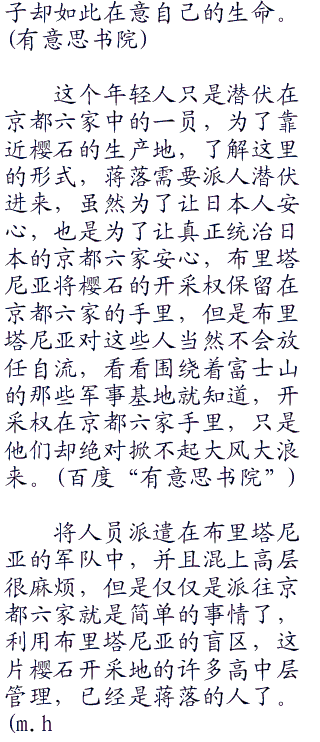 子却如此在意自己的生命。
(有意思书院)
这个年轻人只是潜伏在
京都六家中的一员，为了靠
近樱石的生产地，了解这里
的形式，蒋落需要派人潜伏
进来，虽然为了让日本人安
心，也是为了让真正统治日
本的京都六家安心，布里塔
尼亚将樱石的开采权保留在
京都六家的手里，但是布里
塔尼亚对这些人当然不会放
任自流，看看围绕着富士山
的那些军事基地就知道，开
采权在京都六家手里，只是
他们却绝对掀不起大风大浪
来。(百度“有意思书院”)
将人员派遣在布里塔尼
亚的军队中，并且混上高层
很麻烦，但是仅仅是派往京
都六家就是简单的事情了，
利用布里塔尼亚的盲区，这
片樱石开采地的许多高中层
管理，已经是蒋落的人了。
(m.h